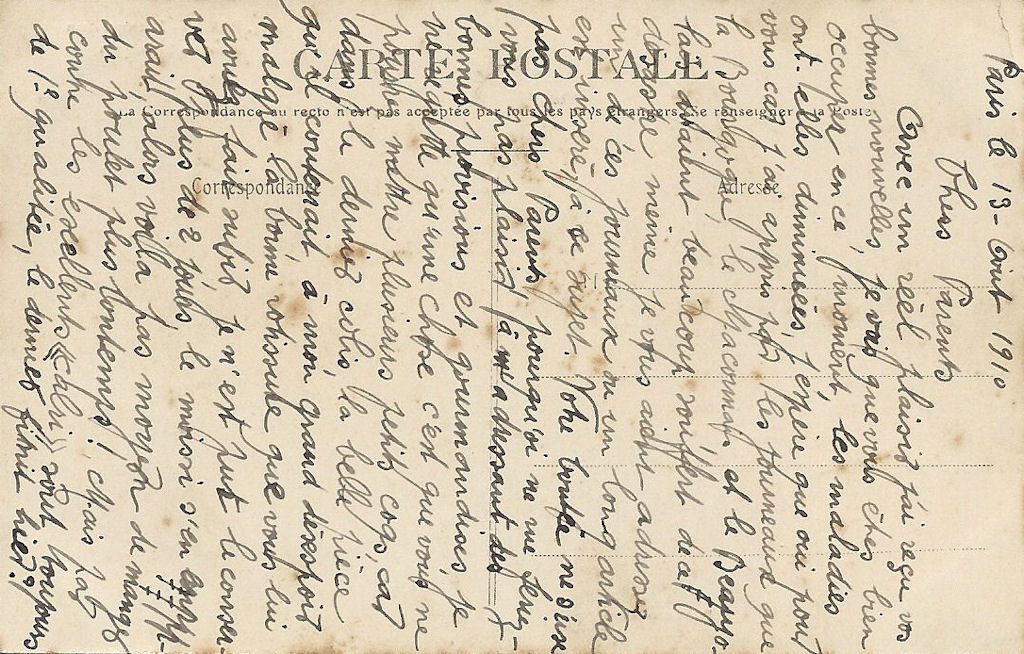 CARTE POSTALE
La Correspondance au recto n'est pas acceptée par tous les pays étrangers (Se renseigner à la Poste)
Correspondance
Adresse
Paris le 13 - Aout 1910
Chers Parents
Avec un réel plaisir j'ai reçu vos
bonnes nouvelles, je vais que vous êtes bien
occuper en ce moment les maladies
ont-elles diminuées, j'espère que oui pour
vous car j'ai appris par les journeaux que
la Bourgogne, le Maconnais et le Beaujo-
lais avaint beaucoup souffert de
même je vous ait adresser
un de ces journeaux ou un long article
est inséré à ce sujet. Votre bonté ne s'use
pas chers Parents pourquoi ne me feriez-
vous pas plaisir, à m'adressant des
bonnes provisions et gourmandises, je
ne regrette qu'une chose c'est que vous ne
pouvez mettre plusieurs petits coqs, car
dans le dernier colis la belle pièce
qu'il contenait à mon grand désespoir
malgré la bonne rotissure que vous lui
aviez fait subir je n'est put le conser-
ver plus de 2 jours le moisi s'en
avait alors voilla pas moyon de manger
du poulet plus lontemps! Mais par
contre les excellents sont toujours
de 1re qualitée, le dernier finit hier?